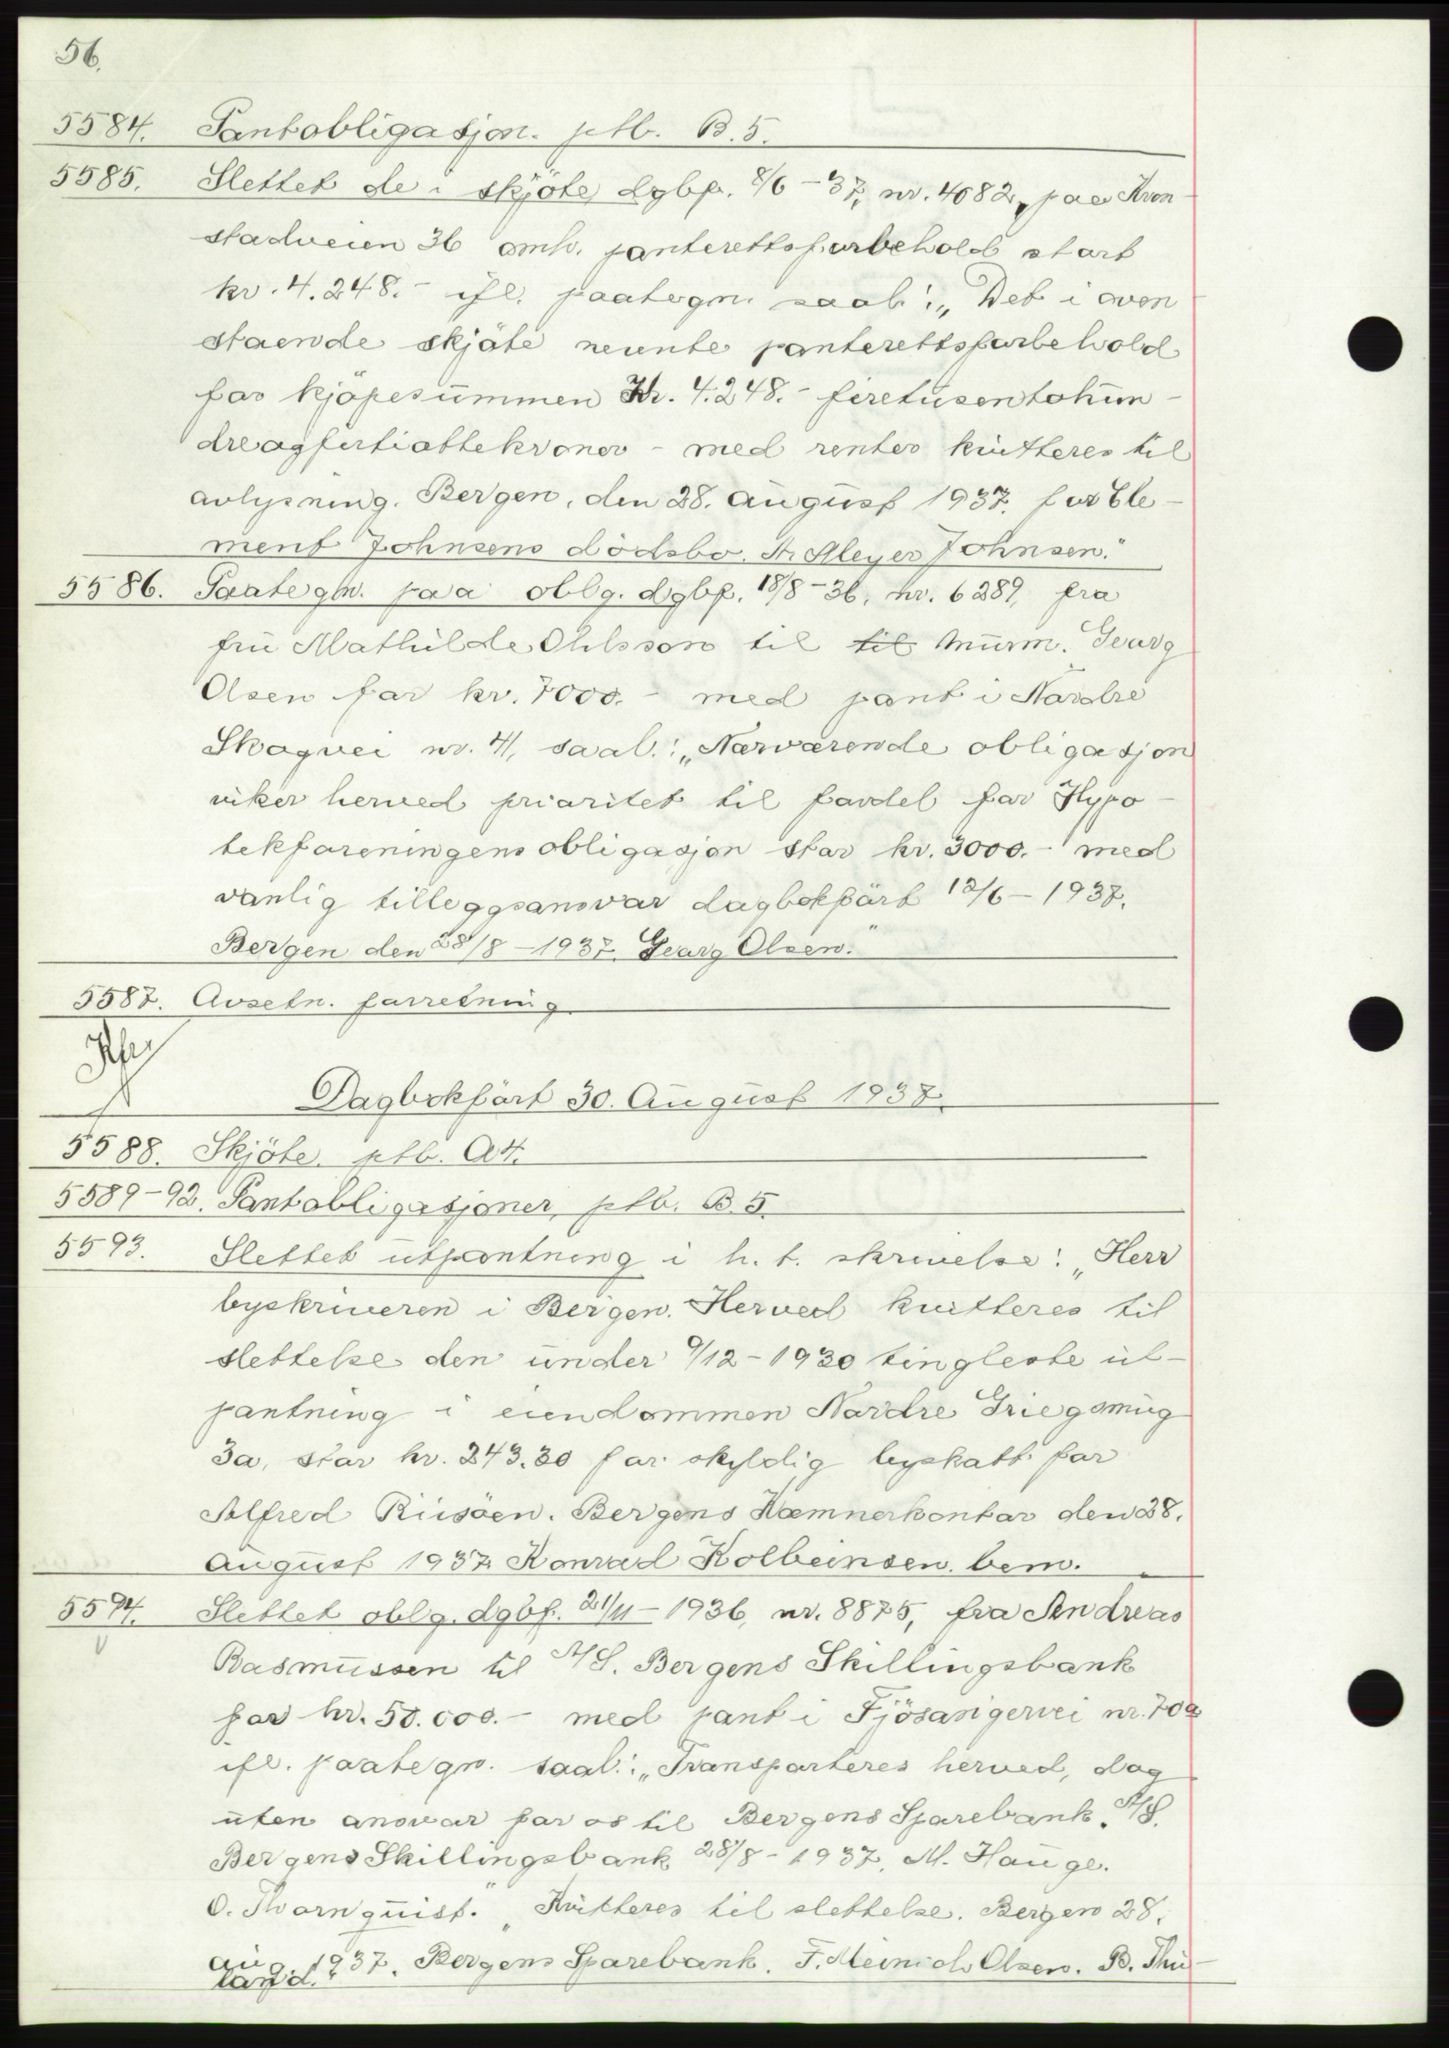 56.
5584. Pantobligasjon. ptb. B.5.
5585. Slettet de i skjöte dgbf. 8/6-37, nr. 4082, paa Kron
stadveien 36 omh. panterettsforbehold stort
kr. 4.248.- ifl. paategn. saal: „Det i oven
staende skjöte nevnte panterettsforbehold
for kjöpesummen Kr. 4.248.- firetusentohun-
dreogförtiåttekroner - med renter kvitteres til
avlysning. Bergen, den 28. august 1937. for Cle-
ment Johnsens dödsbo. Meyer Johnsen."
5586. Paategn. paa oblg. dgbf. 18/8-36, nr. 6289, fra
fru Mathilde Ohlsson til til Murm. Georg
Olsen for kr. 7000.- med pant i Nordre
Skogvei nr. 4, saal: „Nærværende obligasjon
viker herved prioritet til fordel for Hypo-
tekforeningens obligasjon stor kr. 3000.- med
vanlig tilleggsansvar dagbokfört 12/6-1937.
Bergen den 28/8-1937. Georg Olsen."
5587. Avsetn. forretning
Dagbokfört 30. August 1937.
5588. Skjöte. ptb. A4.
5589-92. Pantobligasjoner, ptb. B.5.
5593. Slettet utpantning i h. t. skrivelse: „Herr
byskriveren i Bergen. Herved kvitteres til
slettelse den under 9/12-1930 tingleste ut-
pantning i eiendommen Nordre Griegsmug
3a, stor kr. 243.30 for skyldig byskatt for
Alfred Riisöen. Bergens Kæmnerkontor den 28.
august 1937 Konrad Kolbeinsen. bem.
5594. Slettet oblg. dgbf. 21/11-1936, nr. 8875, fra Andreas
Rasmussen til A/S. Bergens Skillingsbank
for kr. 50.000.- med pant i Fjösangervei nr. 70a
ifl. paategn. saal: „Transporteres herved, dog
uten ansvar for os til Bergens Sparebank. A/S.
Bergens Skillingsbank 28/8-1937, M. Hauge.
O. Thornquist." „Kvitteres til slettelse. Bergen 28.
aug. 1937. Bergens Sparebank. F. Meinich Olsen. B. Thu-
land."